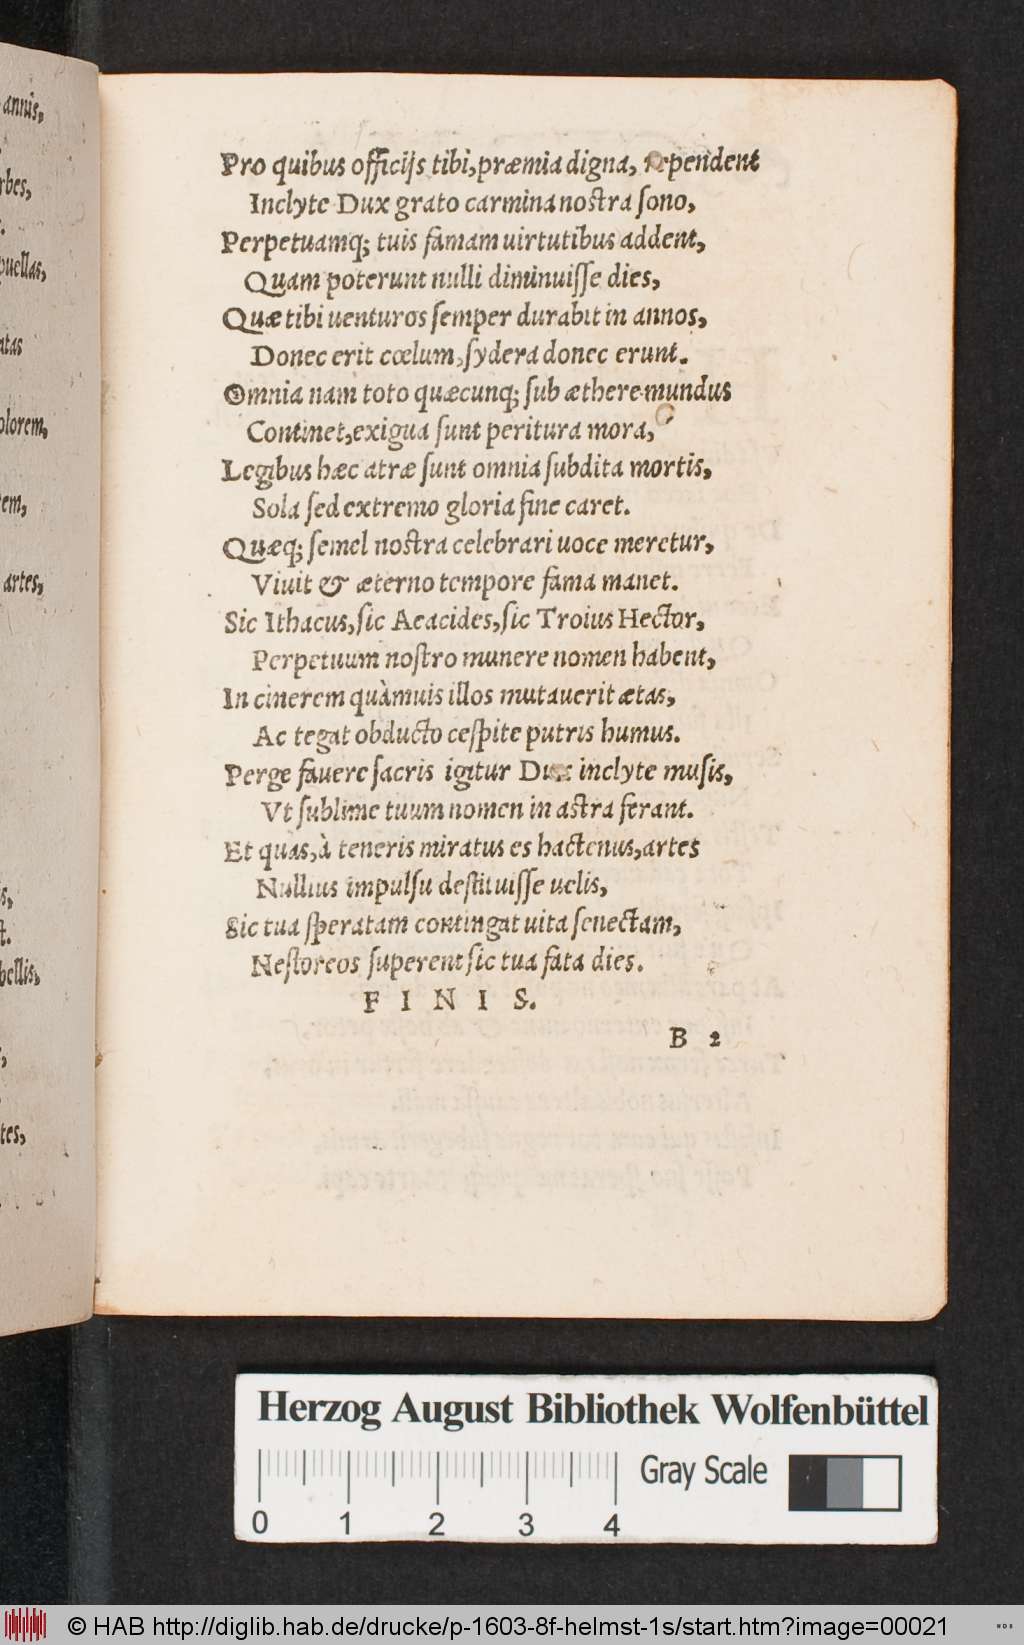 Pro quibus officijs tibi, præmia digna, rependent
Inclyte Dux grato carmina nostra sono,
Perpetuamq; tuis famam uirtutibus addent,
Quam poterunt nulli diminuisse dies,
Quæ tibi uenturos semper durabit in annos,
Donec erit cœlum, sydera donec erunt.
Omnia nam toto quæcunq; sub æthere mundus
Continet, exigua sunt peritura mora,
Legibus hæc atræ sunt omnia subdita mortis,
Sola sed extremo gloria fine caret.
Quæq; semel nostra celebrari uoce meretur,
Viuit & æterno tempore fama manet.
Sic Ithacus, sic Aeacides, sic Troius Hector,
Perpetuum nostro munere nomen habent,
In cinerem quàmuis illos mutauerit ætas,
Ac tegat obducto cespite putris humus.
Perge fauere sacris igitur Dux inclyte musis,
Vt sublime tuum nomen in astra ferant.
Et quas, à teneris miratus es hactenus, artes
Nullius impulsu destituisse uelis,
Sic tua speratam contingat uita senectam,
Nestoreos superent sic tua fata dies.
FINIS.
B 2
annis,
rbes,
puellas,
atas
olorem,
tem,
artes,
s,
st.
bellis,
tes,
Herzog August Bibliothek Wolfenbüttel
Gray Scale
0 1 2 3 4
© HAB http://diglib.hab.de/drucke/p-1603-8f-helmst-1s/start.htm?image=00021